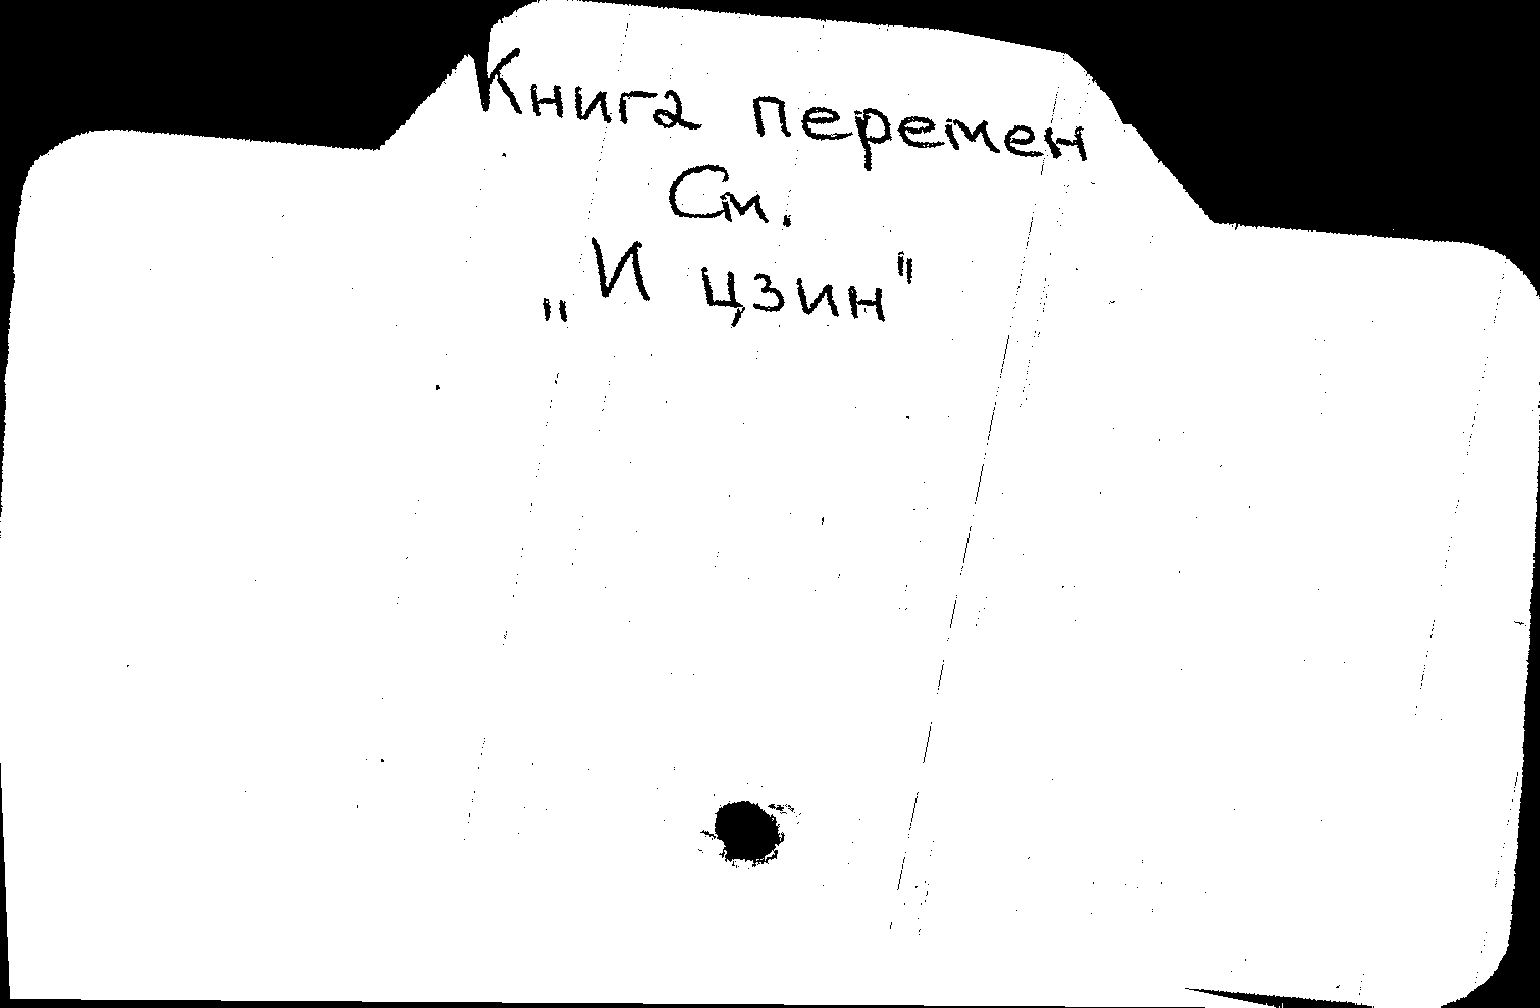 Книга перемен
См.
„И цзин"